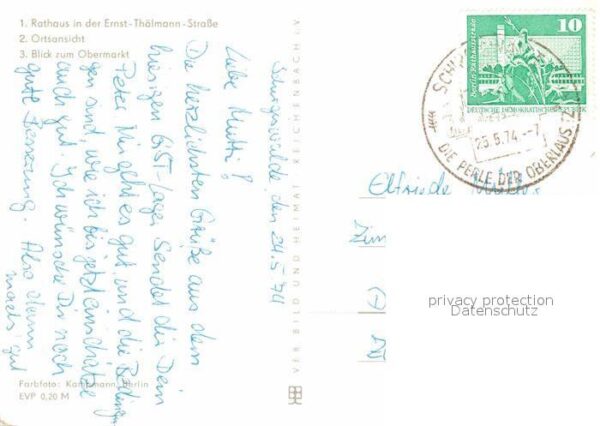 1. Rathaus in der Ernst-Thälmann-Straße
2. Ortsansicht
3. Blick zum Obermarkt
den 24.5.74
Liebe Mutti!
Die herzlichsten Grüße aus dem
hiesigen GST-Lager sendet dir Dein
Peter. Mir geht es gut und die Bedingun
gen sind, wie ich bis jetzt einschätze
auch gut. Ich wünsche Dir noch
gute Besserung. Also dann
mach's gut
Farbfoto: Kampmann, Berlin
EVP 0,20 M
VEB BILD UND HEIMAT REICHENBACH i.V.
10
Berlin Rathausstraße
DEUTSCHE DEMOKRATISCHE REPUBLIK
25.5.74 - 7
DIE PERLE DER OBERLAUSITZ
Elfriede
privacy protection
Datenschutz